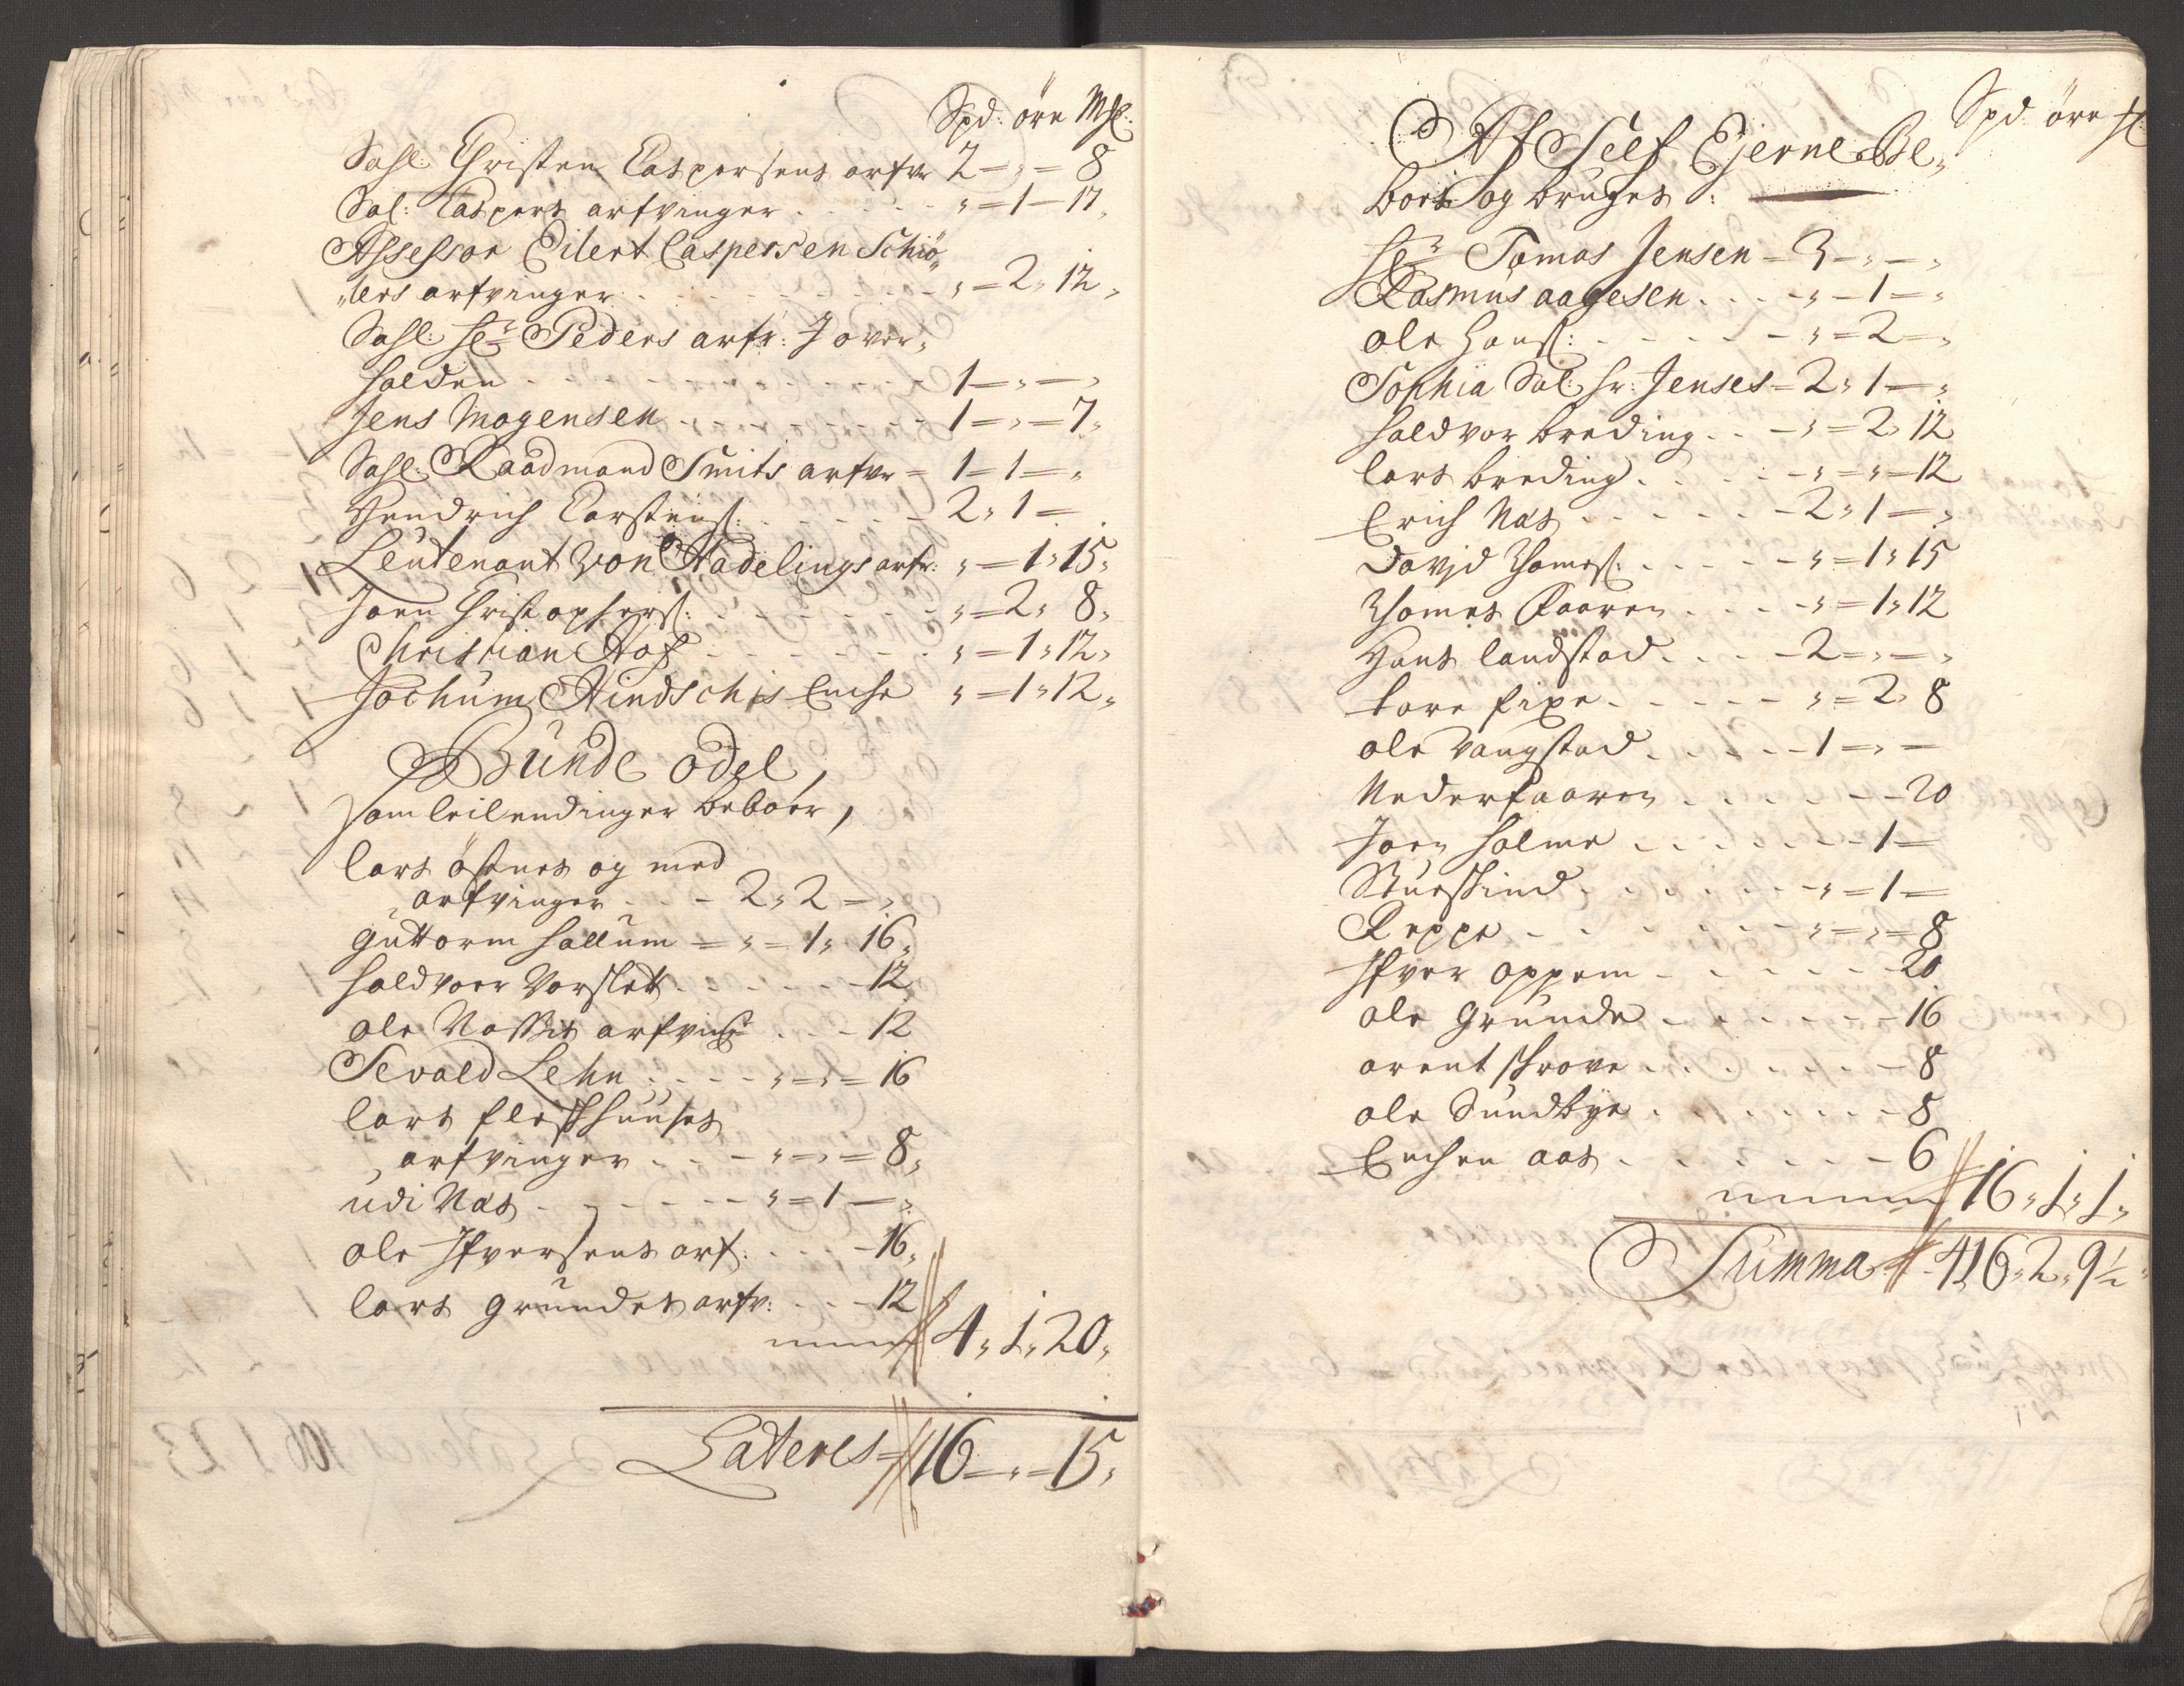 Spd: öre Mkl:
Sahl: Christen Caspersens arfvr 2 – „ = 8
Sal: Caspers arfvinger . . . . . „ = 1 – 17„
Assessor Eilert Caspersen Schiö„
„lers arfvinger . . . . . . „ = 2„ 12„
Sahl: hr Peders arfr: J over„
halden . . . . . . . . 1 – „ – „
Jens Mogensen . . . . . 1 = „ = 7„
Sahl: Raadmand Smits arfvr = 1 = 1 = „
Hendrich Carstens: . . . . . 2„ 1 =
Leutenant Von Hadelings arfr: „ = 1„ 15„
Joen Christophers: . . . . . „ = 2„ 8„
Christian Hof . . . . . . „ = 1„ 12„
Jochum Hindschis Enche „ = 1„ 12„
Bunde odel,
som leilendinger beboer,
lars östnes og med
arfvinger . . . 2„ 2 = „
guttorm hallum = „ = 1„ 16„
haldvoer Vorslett . . . . . 12
ole arfving . . . 12
Sevald Lehn . . . . „ = „ = 16
lars fleskhuuses
arfvinger . . . „ = „ = 8„
udi Næs . . . . . . „ = 1 – „
ole Ifversens arf: . . . – 16„
lars grundes arfv: . . . 12
4„ 1„ 20„
Lateres 16 – „ = 15„
Spd öre
Af Self Ejerne Be„
boes og bruges :
hr Tomas Jensen – 3 – „ – „
Rasmus aagesen . . . . „ – 1 – „
ole Hans: . . . . . „ = 2 – „
Sophia Sal: hr: Jenses – 2„ 1 – „
haldvor breding . . – „ = 2„ 12
lars breding . . . . – „ = „ – 12
Erich Næs . . . . . . – 2„ 1 – „
David Thomes: . . . . . „ = 1„ 15
Thomes Faaren . . . . – „ = 1„ 12
Hans landstad . . . . – 2 = „ – „
tore fixe . . . . . . „ = 2„ 8
ole Vangstad . . . . . – 1 = „ –
Nederfaaren . . . . . . – 20
Joen holme . . . . . . . – 1 –
. . . . . . „ = 1 =
Reppe . . . . . . . „ = „ = 8
Ifver oppem . . . . . . 20
ole grunde . . . . . . – 16
arent skrove . . . . . . – 8
ole Sundbye . . . . . . – 8
Enchen aas . . . . . . . – 6
16„ 1„ 1„
Summa 416„ 2„ 9½